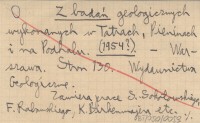 O Z badań geologicznych
wykonanych w Tatrach, Pieninach
i na Podhalu. (1954?) – War-
szawa. Stron 130. Wydawnictwa
Geologiczne.
Zawiera prace S. Sokołowskiego,
F. Rabowskiego, K. Birkenmajera etc.